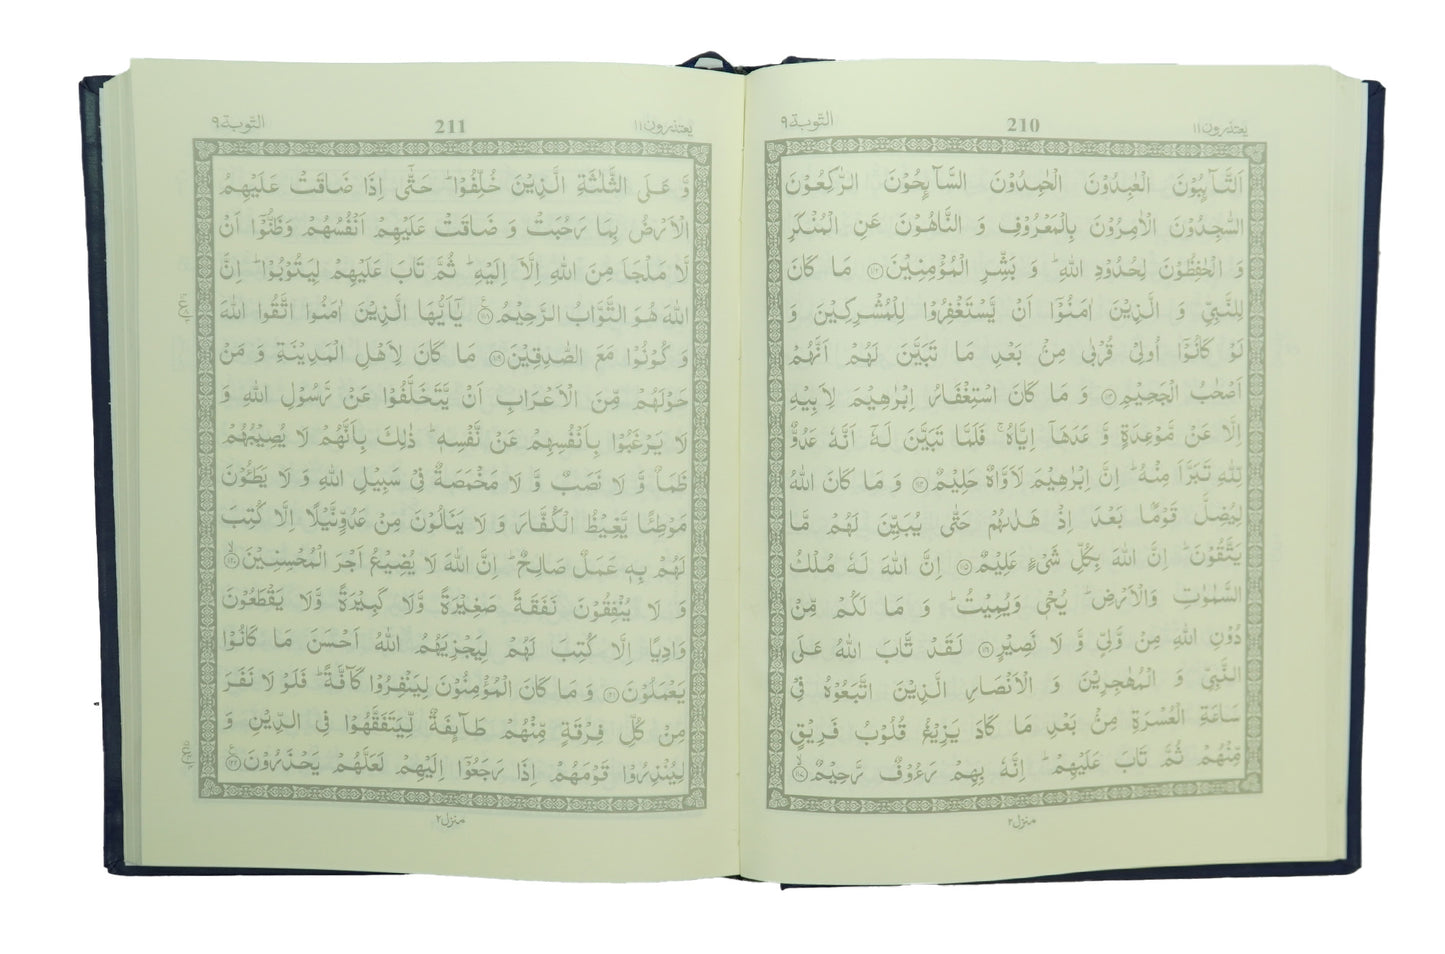 يعتذرون ١١
210
التوبة ٩
اَلتَّآىِٕبُوْنَ الْعٰبِدُوْنَ الْحٰمِدُوْنَ السَّآىِٕحُوْنَ الرّٰكِعُوْنَ
السّٰجِدُوْنَ الْاٰمِرُوْنَ بِالْمَعْرُوْفِ وَ النَّاهُوْنَ عَنِ الْمُنْكَرِ
وَ الْحٰفِظُوْنَ لِحُدُوْدِ اللّٰهِ ؕ وَ بَشِّرِ الْمُؤْمِنِيْنَ ۝۱۱۲ مَا كَانَ
لِلنَّبِيِّ وَ الَّذِيْنَ اٰمَنُوْۤا اَنْ يَّسْتَغْفِرُوْا لِلْمُشْرِكِيْنَ وَ
لَوْ كَانُوْۤا اُولِيْ قُرْبٰى مِنْۢ بَعْدِ مَا تَبَيَّنَ لَهُمْ اَنَّهُمْ
اَصْحٰبُ الْجَحِيْمِ ۝۱۱۳ وَ مَا كَانَ اسْتِغْفَارُ اِبْرٰهِيْمَ لِاَبِيْهِ
اِلَّا عَنْ مَّوْعِدَةٍ وَّ عَدَهَاۤ اِيَّاهُ ۚ فَلَمَّا تَبَيَّنَ لَهٗۤ اَنَّهٗ عَدُوٌّ
لِّلّٰهِ تَبَرَّاَ مِنْهُ ؕ اِنَّ اِبْرٰهِيْمَ لَاَوَّاهٌ حَلِيْمٌ ۝۱۱۴ وَ مَا كَانَ اللّٰهُ
لِيُضِلَّ قَوْمًۢا بَعْدَ اِذْ هَدٰىهُمْ حَتّٰى يُبَيِّنَ لَهُمْ مَّا
يَتَّقُوْنَ ؕ اِنَّ اللّٰهَ بِكُلِّ شَيْءٍ عَلِيْمٌ ۝۱۱۵ اِنَّ اللّٰهَ لَهٗ مُلْكُ
السَّمٰوٰتِ وَالْاَرْضِ ؕ يُحْيٖ وَيُمِيْتُ ؕ وَ مَا لَكُمْ مِّنْ
دُوْنِ اللّٰهِ مِنْ وَّلِيٍّ وَّ لَا نَصِيْرٍ ۝۱۱۶ لَقَدْ تَّابَ اللّٰهُ عَلَى
النَّبِيِّ وَ الْمُهٰجِرِيْنَ وَ الْاَنْصَارِ الَّذِيْنَ اتَّبَعُوْهُ فِيْ
سَاعَةِ الْعُسْرَةِ مِنْۢ بَعْدِ مَا كَادَ يَزِيْغُ قُلُوْبُ فَرِيْقٍ
مِّنْهُمْ ثُمَّ تَابَ عَلَيْهِمْ ؕ اِنَّهٗ بِهِمْ رَءُوْفٌ رَّحِيْمٌ ۝۱۱۷
منزل ۲
يعتذرون ١١
211
التوبة ٩
وَّ عَلَى الثَّلٰثَةِ الَّذِيْنَ خُلِّفُوْا ؕ حَتّٰۤى اِذَا ضَاقَتْ عَلَيْهِمُ
الْاَرْضُ بِمَا رَحُبَتْ وَ ضَاقَتْ عَلَيْهِمْ اَنْفُسُهُمْ وَظَنُّوْۤا اَنْ
لَّا مَلْجَاَ مِنَ اللّٰهِ اِلَّاۤ اِلَيْهِ ؕ ثُمَّ تَابَ عَلَيْهِمْ لِيَتُوْبُوْا ؕ اِنَّ
اللّٰهَ هُوَ التَّوَّابُ الرَّحِيْمُ ۝۱۱۸ يٰۤاَيُّهَا الَّذِيْنَ اٰمَنُوا اتَّقُوا اللّٰهَ
وَ كُوْنُوْا مَعَ الصّٰدِقِيْنَ ۝۱۱۹ مَا كَانَ لِاَهْلِ الْمَدِيْنَةِ وَ مَنْ
حَوْلَهُمْ مِّنَ الْاَعْرَابِ اَنْ يَّتَخَلَّفُوْا عَنْ رَّسُوْلِ اللّٰهِ وَ
لَا يَرْغَبُوْا بِاَنْفُسِهِمْ عَنْ نَّفْسِهٖ ؕ ذٰلِكَ بِاَنَّهُمْ لَا يُصِيْبُهُمْ
ظَمَاٌ وَّ لَا نَصَبٌ وَّ لَا مَخْمَصَةٌ فِيْ سَبِيْلِ اللّٰهِ وَ لَا يَطَـُٔوْنَ
مَوْطِئًا يَّغِيْظُ الْكُفَّارَ وَ لَا يَنَالُوْنَ مِنْ عَدُوٍّ نَّيْلًا اِلَّا كُتِبَ
لَهُمْ بِهٖ عَمَلٌ صَالِحٌ ؕ اِنَّ اللّٰهَ لَا يُضِيْعُ اَجْرَ الْمُحْسِنِيْنَ ۝۱۲۰
وَ لَا يُنْفِقُوْنَ نَفَقَةً صَغِيْرَةً وَّلَا كَبِيْرَةً وَّلَا يَقْطَعُوْنَ
وَادِيًا اِلَّا كُتِبَ لَهُمْ لِيَجْزِيَهُمُ اللّٰهُ اَحْسَنَ مَا كَانُوْا
يَعْمَلُوْنَ ۝۱۲۱ وَ مَا كَانَ الْمُؤْمِنُوْنَ لِيَنْفِرُوْا كَآفَّةً ؕ فَلَوْ لَا نَفَرَ
مِنْ كُلِّ فِرْقَةٍ مِّنْهُمْ طَآىِٕفَةٌ لِّيَتَفَقَّهُوْا فِي الدِّيْنِ وَ
لِيُنْذِرُوْا قَوْمَهُمْ اِذَا رَجَعُوْۤا اِلَيْهِمْ لَعَلَّهُمْ يَحْذَرُوْنَ ۝۱۲۲
منزل ۲